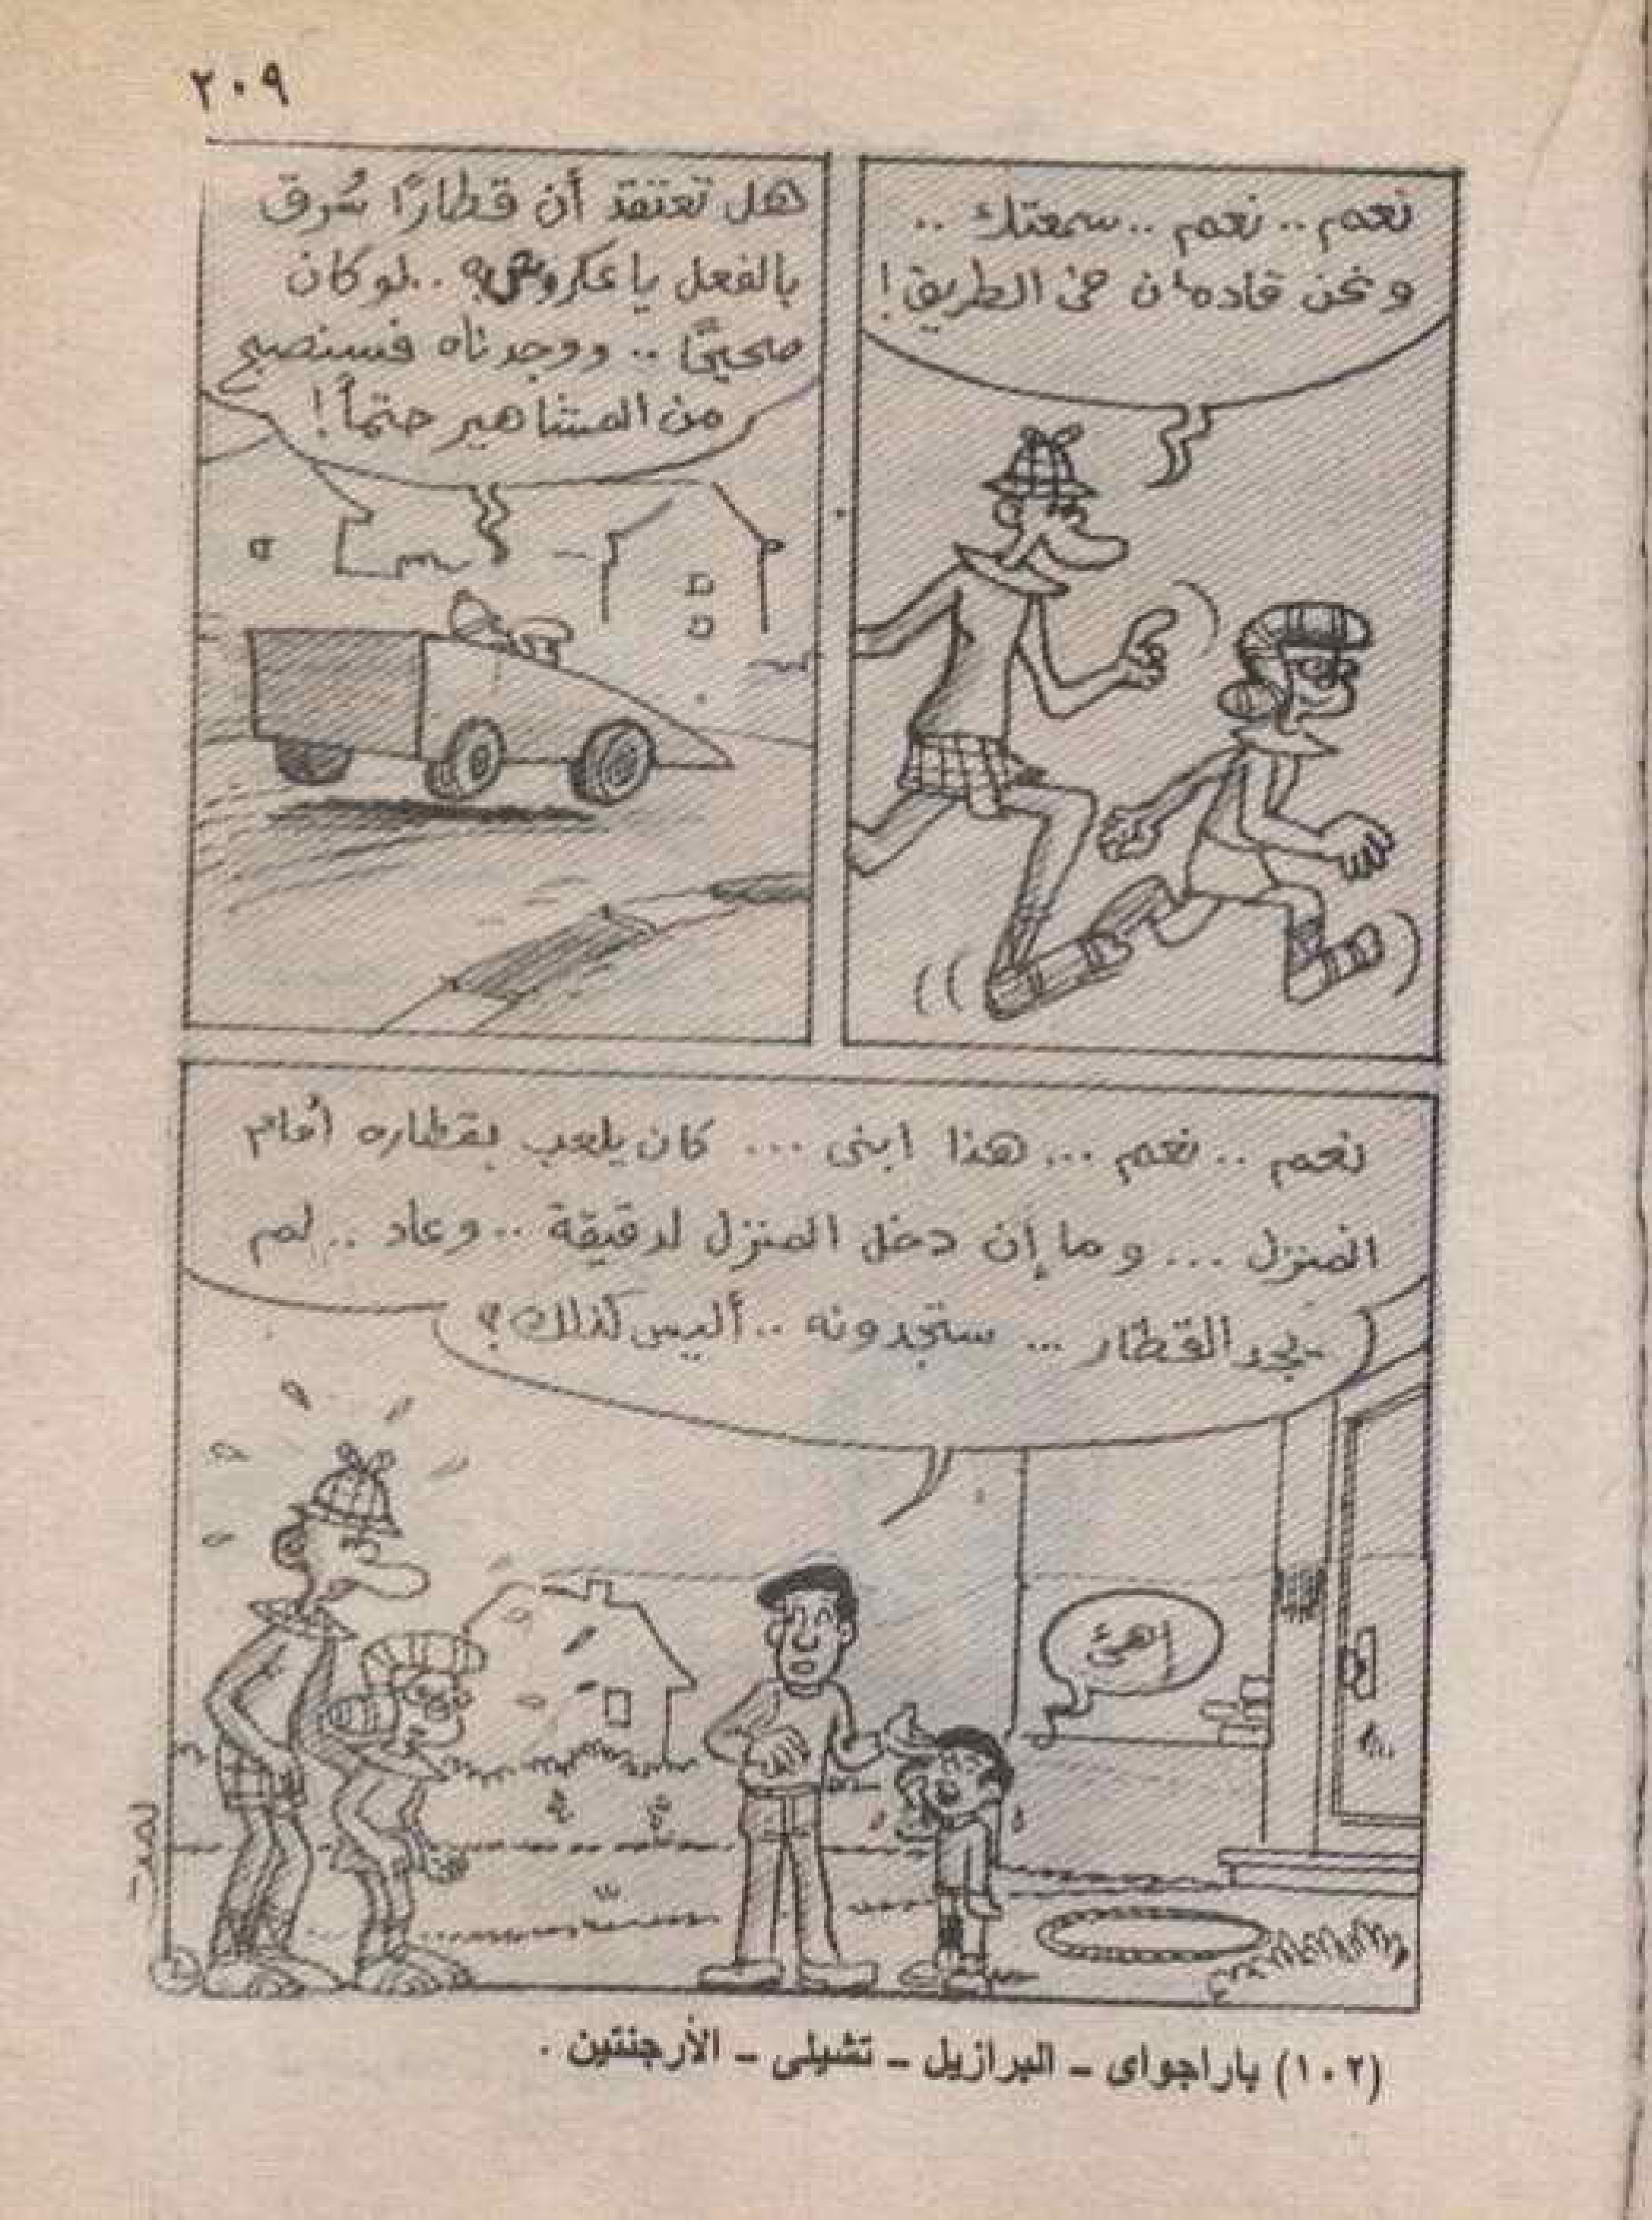 ٢٠٩
نعم .. نعم .. سمعتك ..
ونحن قادمان في الطريق !
هل تعتقد أن قطارًا سُرق
بالفعل يا عكروش؟ .. لو كان
صحيحًا .. ووجدناه فسنصبح
من المشاهير حتماً !
نعم .. نعم ... هذا ابنى ... كان يلعب بقطاره أمام
المنزل ... وما إن دخل المنزل لدقيقة .. وعاد .. لم
يجد القطار ... ستجدونه .. أليس كذلك ؟
إهئ
(١٠٢) باراجواى - البرازيل - تشيلى - الأرجنتين .